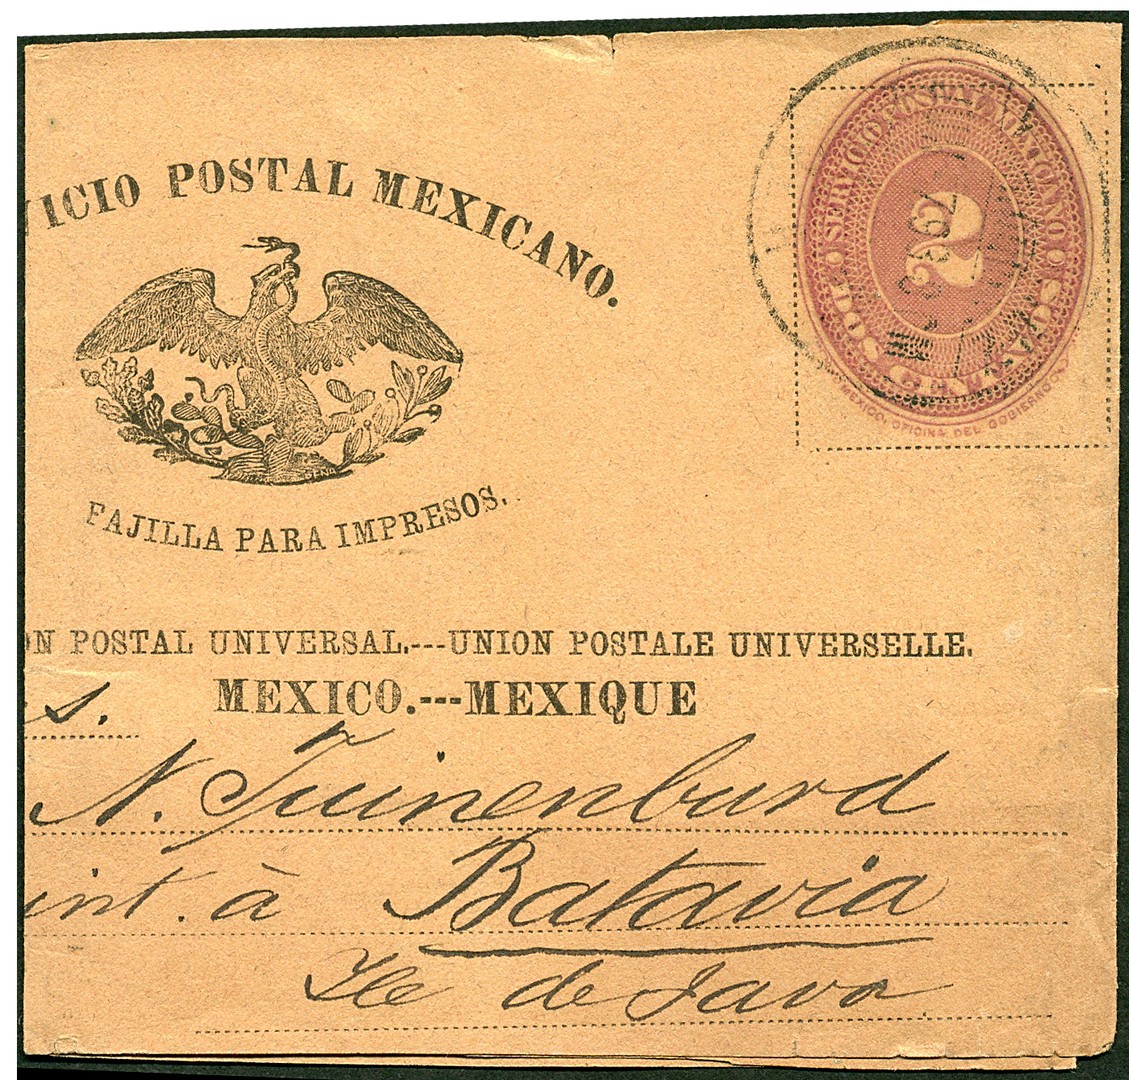 VICIO POSTAL MEXICANO.
FAJILLA PARA IMPRESOS.
SERVICIO POSTAL MEXICANO
2
DOS CENTAVOS
MEXICO, OFICINA DEL GOBIERNO
ON POSTAL UNIVERSAL.---UNION POSTALE UNIVERSELLE.
MEXICO.---MEXIQUE
s.
N. Tuinenburd
int. à Batavia
Ile de Java